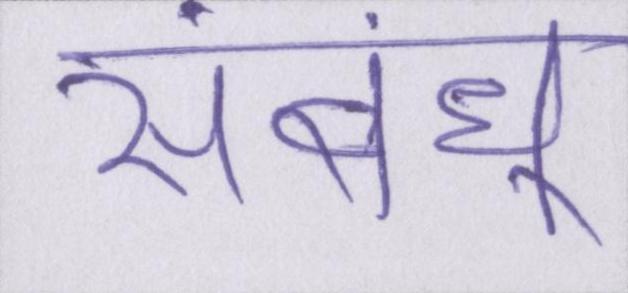 संबंधू